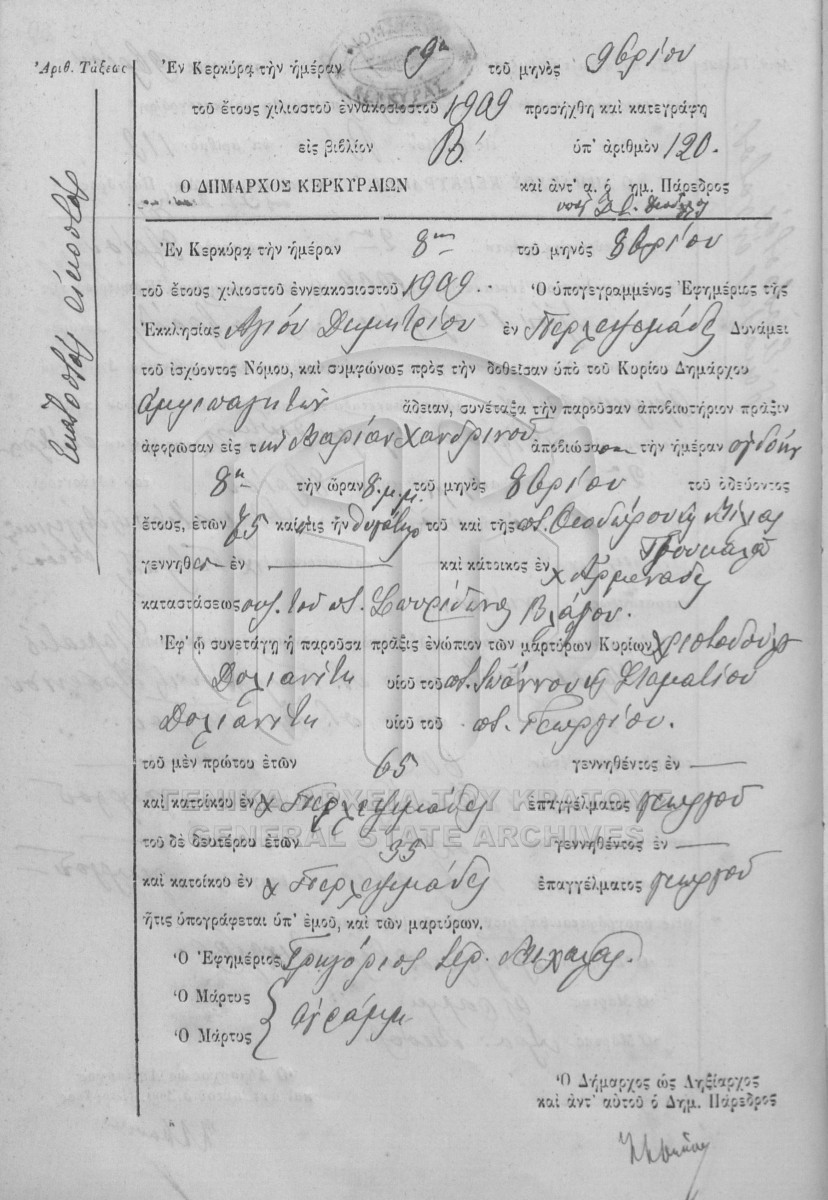 Ἀριθ. Τάξεως
Ἑκατοστὸς εἰκοστός
Ἐν Κερκύρᾳ τὴν ἡμέραν 9ην τοῦ μηνὸς 9βρίου
τοῦ ἔτους χιλιοστοῦ ἐννακοσιοστοῦ 1909 προσήχθη καὶ κατεγράφη
εἰς βιβλίον Β' ὑπ' ἀριθμὸν 120.
Ο ΔΗΜΑΡΧΟΣ ΚΕΡΚΥΡΑΙΩΝ καὶ ἀντ' α. ὁ ημ. Πάρεδρος
Ἐν Κερκύρᾳ τὴν ἡμέραν 8ην τοῦ μηνὸς 8βρίου
τοῦ ἔτους χιλιοστοῦ ἐννεακοσιοστοῦ 1909. Ὁ ὑπογεγραμμένος Ἐφημέριος τῆς
Ἐκκλησίας Αγίου Δημητρίου ἐν Περλεψιμάδες Δυνάμει
τοῦ ἰσχύοντος Νόμου, καὶ συμφώνως πρὸς τὴν δοθεῖσαν ὑπὸ τοῦ Κυρίου Δημάρχου
ἄδειαν, συνέταξα τὴν παροῦσαν ἀποβιωτήριον πρᾶξιν
ἀφορῶσαν εἰς τὴν Μαρίαν Χανδρινοῦ ἀποβιώσασαν τὴν ἡμέραν ογδόην
8ην τὴν ὥραν 8 μ.μ. τοῦ μηνὸς 8βρίου τοῦ ὁδεύοντος
ἔτους, ἐτῶν 75 καὶ ἥτις ἦν θυγάτηρ τοῦ καὶ τῆς π. Θεοδώρου
γεννηθεῖσα ἐν — καὶ κάτοικος ἐν χ Αρμενάδες
καταστάσεως συζ. τοῦ π. Σπυρίδωνος Βλάχου.
Ἐφ' ᾧ συνετάγη ἡ παροῦσα πρᾶξις ἐνώπιον τῶν μαρτύρων Κυρίων Χριστοδούλου
Δολιανίτη υἱοῦ τοῦ π. Ιωάννου ϗ Σταματίου
Δολιανίτη υἱοῦ τοῦ π. Γεωργίου.
τοῦ μὲν πρώτου ἐτῶν 65 γεννηθέντος ἐν —
καὶ κατοίκου ἐν χ Περλεψιμάδες ἐπαγγέλματος γεωργοῦ
ΓΕΝΙΚΑ ΑΡΧΕΙΑ ΤΟΥ ΚΡΑΤΟΥΣ
GENERAL STATE ARCHIVES
τοῦ δὲ δευτέρου ἐτῶν 35 γεννηθέντος ἐν —
καὶ κατοίκου ἐν χ Περλεψιμάδες ἐπαγγέλματος γεωργοῦ
ἥτις ὑπογράφεται ὑπ' ἐμοῦ, καὶ τῶν μαρτύρων.
Ὁ Ἐφημέριος Γρηγόριος Ιερ. Μιχαλάς.
Ὁ Μάρτυς
Ὁ Μάρτυς } αγράμμ
Ὁ Δήμαρχος ὡς Ληξίαρχος
καὶ ἀντ' αὐτοῦ ὁ Δημ. Πάρεδρος